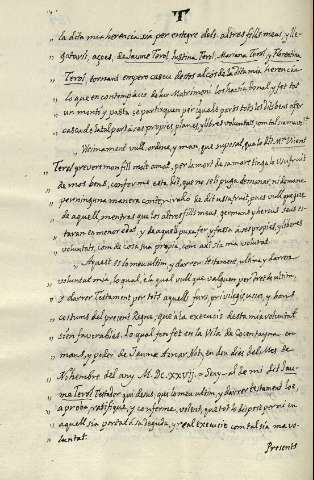 T
la dita mia herencia sia per entegre dels a dtres fills meus, y lle-
gataris, açoes, de Jaume Terol, Justina Terol, Mariana Terol, y Florentina
Terol, tornant empero cascu de dtos al cos de la dita mia herencia
lo que en contemplacio de son Matrimoni los hauria donat y fet tot
un munt, y pasta, se partixquen per yguals parts tots los dits bens afer
cascu de la tal part a ses propies planes, y llibres voluntats, com tal
Ultimament vull, ordene, y man, que suposat, que lo dit Mn. Vicent
Terol prevere mon fill molt amat, per la mort de sa mare tinga lo usufruit
de mos bens, conforme esta dit, que no se li puga demanar, ni demane
per ninguna manera conte, y raho de dit usufruit, pues vull que juse
de aquell, mentres que los altres fills meus germans y hereus seus es-
taran en menor edat, y de aquell puxa fer y fassa a ses propies, y llibres
voluntats, com de cosa sua propia, com axi sia ma voluntat.
Aquest es lo meu ultim, y darrer testament, ultima, y darrera
voluntat mia, lo qual, e la qual vull que valguen per dret de ultim,
y darrer Testament per tots aquells furs, privilegis, usos, y bons
costums del present Regne, que a la execucio desta mia voluntat
sien favorables. Lo qual fon fet en la Vila de Cocentayna en
mans, y poder de Jaume Aznar Not. en deu dies del Mes de
Nohembre del any M.DC.XXVII. = Seny-al de mi dit Jau-
me Terol Testador qui desus, que lo meu ultim, y darrer testament loe,
aprobe, ratifique, y conferme, volent, que tot lo dispost per mi en
aquell sia portat a sa deguda, y real execucio com tal sia ma vo-
luntat.
Presents